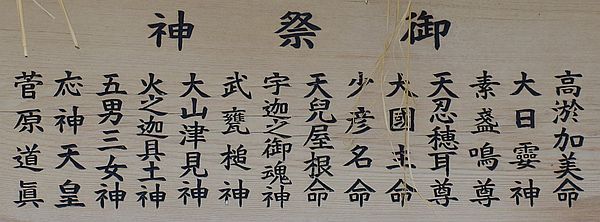 御祭神
高淤加美命
大日孁神
素盞鳴尊
天忍穂耳尊
大國主命
少彦名命
天兒屋根命
宇迦之御魂神
武甕槌神
大山津見神
火之迦具土神
五男三女神
応神天皇
菅原道眞